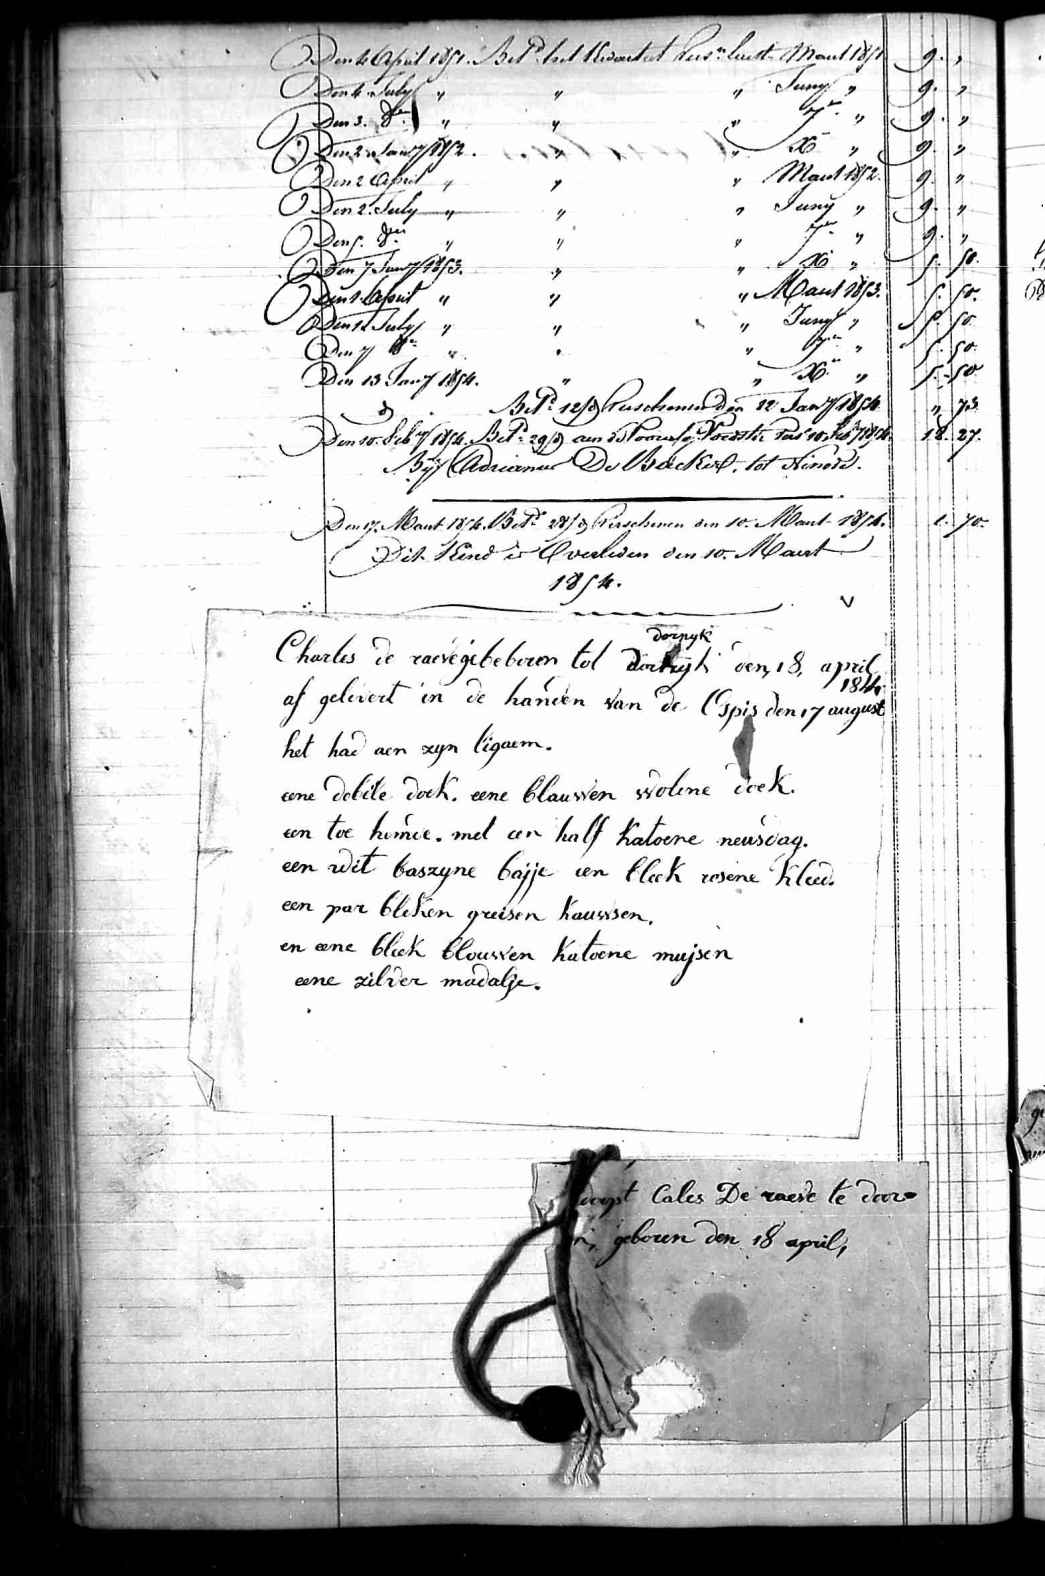 Den 4 April 1851. Bet.d het Kwartael Vers.n luest. Maert 1851 9. „
Den 4 July „ „ „ Juny „ 9. „
Den 3. 8.bre „ „ „ 7.re „ 9. „
Den 2 Janry 1852. „ „ X.re „ 9. „
Den 2 April „ „ „ Maert 1852. 9. „
Den 2 July „ „ „ Juny „ 9. „
Den 5. 8.bre „ „ „ 7.re „ 9. „
Den 7 Janry 1853. „ „ X.re „ 5. 50.
Den 1 April „ „ „ Maert 1853. 5. 50.
Den 12 July „ „ „ Juny „ 5. 50
Den 7 8.bre „ „ „ 7.re „ 5. 50
Den 13 Janry 1854. „ „ X.re „ 5. 50
Bet.d 12/d Verschenen den 12 Janry 1854 „ 73
Den 10. Feb.ry 1854. Bet.d 29/d aen Voedster 10. Feb.ry 1854. 18. 27.
By Adriana De Backer, tot Ninove.
Den 17. Maert 1854. Bet.d 28/d Verschenen den 10. Maert 1854. 1. 70.
Dit Kind is Overleden den 10. Maert
1854.
dornyk
Charles de raeve gebeboren tol den, 18, april,
1841
af gelevert in de handen van de Ospis den 17 august
het had aen zyn ligaem.
eene debile doek. eene blauwen wolene doek.
een toe hemde. met een half katoene neusdag.
een wit baszyne bajje een bleek rosene kleed.
een par bleken greisen kaussen.
en eene bleek blouwen katoene mujsen
eene zilver madalje.
doopt Cales De raeve te door=
n, geboren den 18 april,